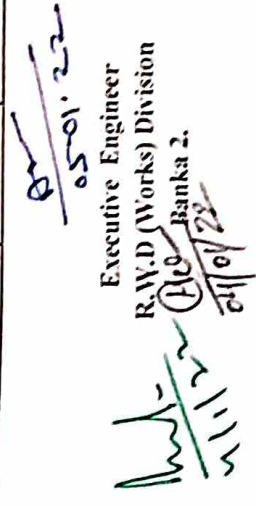 05-01-22
Executive Engineer
R.W.D (Works) Division
Banka 2.
04/01/22